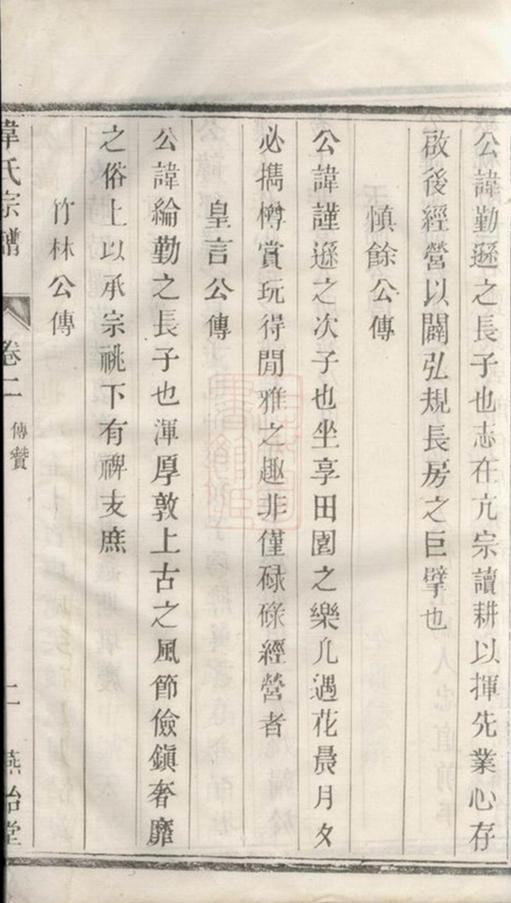 公諱勤遜之長子也志在亢宗讀耕以揮先業心存
啟後經營以闢弘規長房之巨擘也
慎餘公傳
公諱謹遜之次子也坐享田園之樂凡遇花晨月夕
必攜樽賞玩得閒雅之趣非僅碌碌經營者
皇言公傳
公諱綸勤之長子也渾厚敦上古之風節儉鎮奢靡
之俗上以承宗祧下有裨支庶
竹林公傳
韋氏宗譜
卷二
傳贊
二
燕詒堂